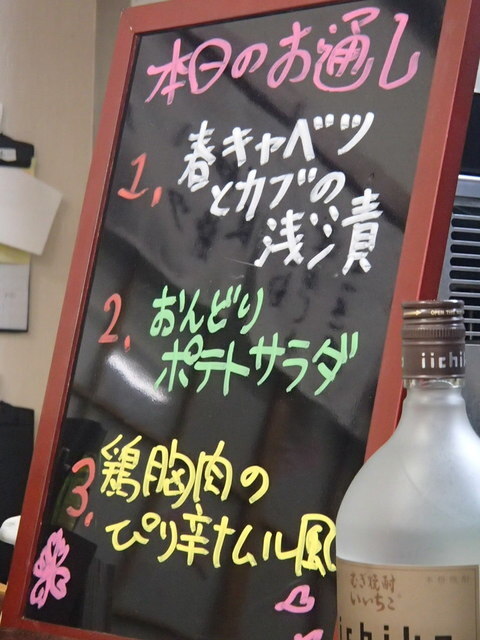 本日のお通し
1. 春キャベツ
とカブの
浅漬
2. おんどり
ポテトサラダ
3. 鶏胸肉の
ぴり辛ナムル風
iichi
むぎ焼酎
いいちこ
本格焼酎
iichiko